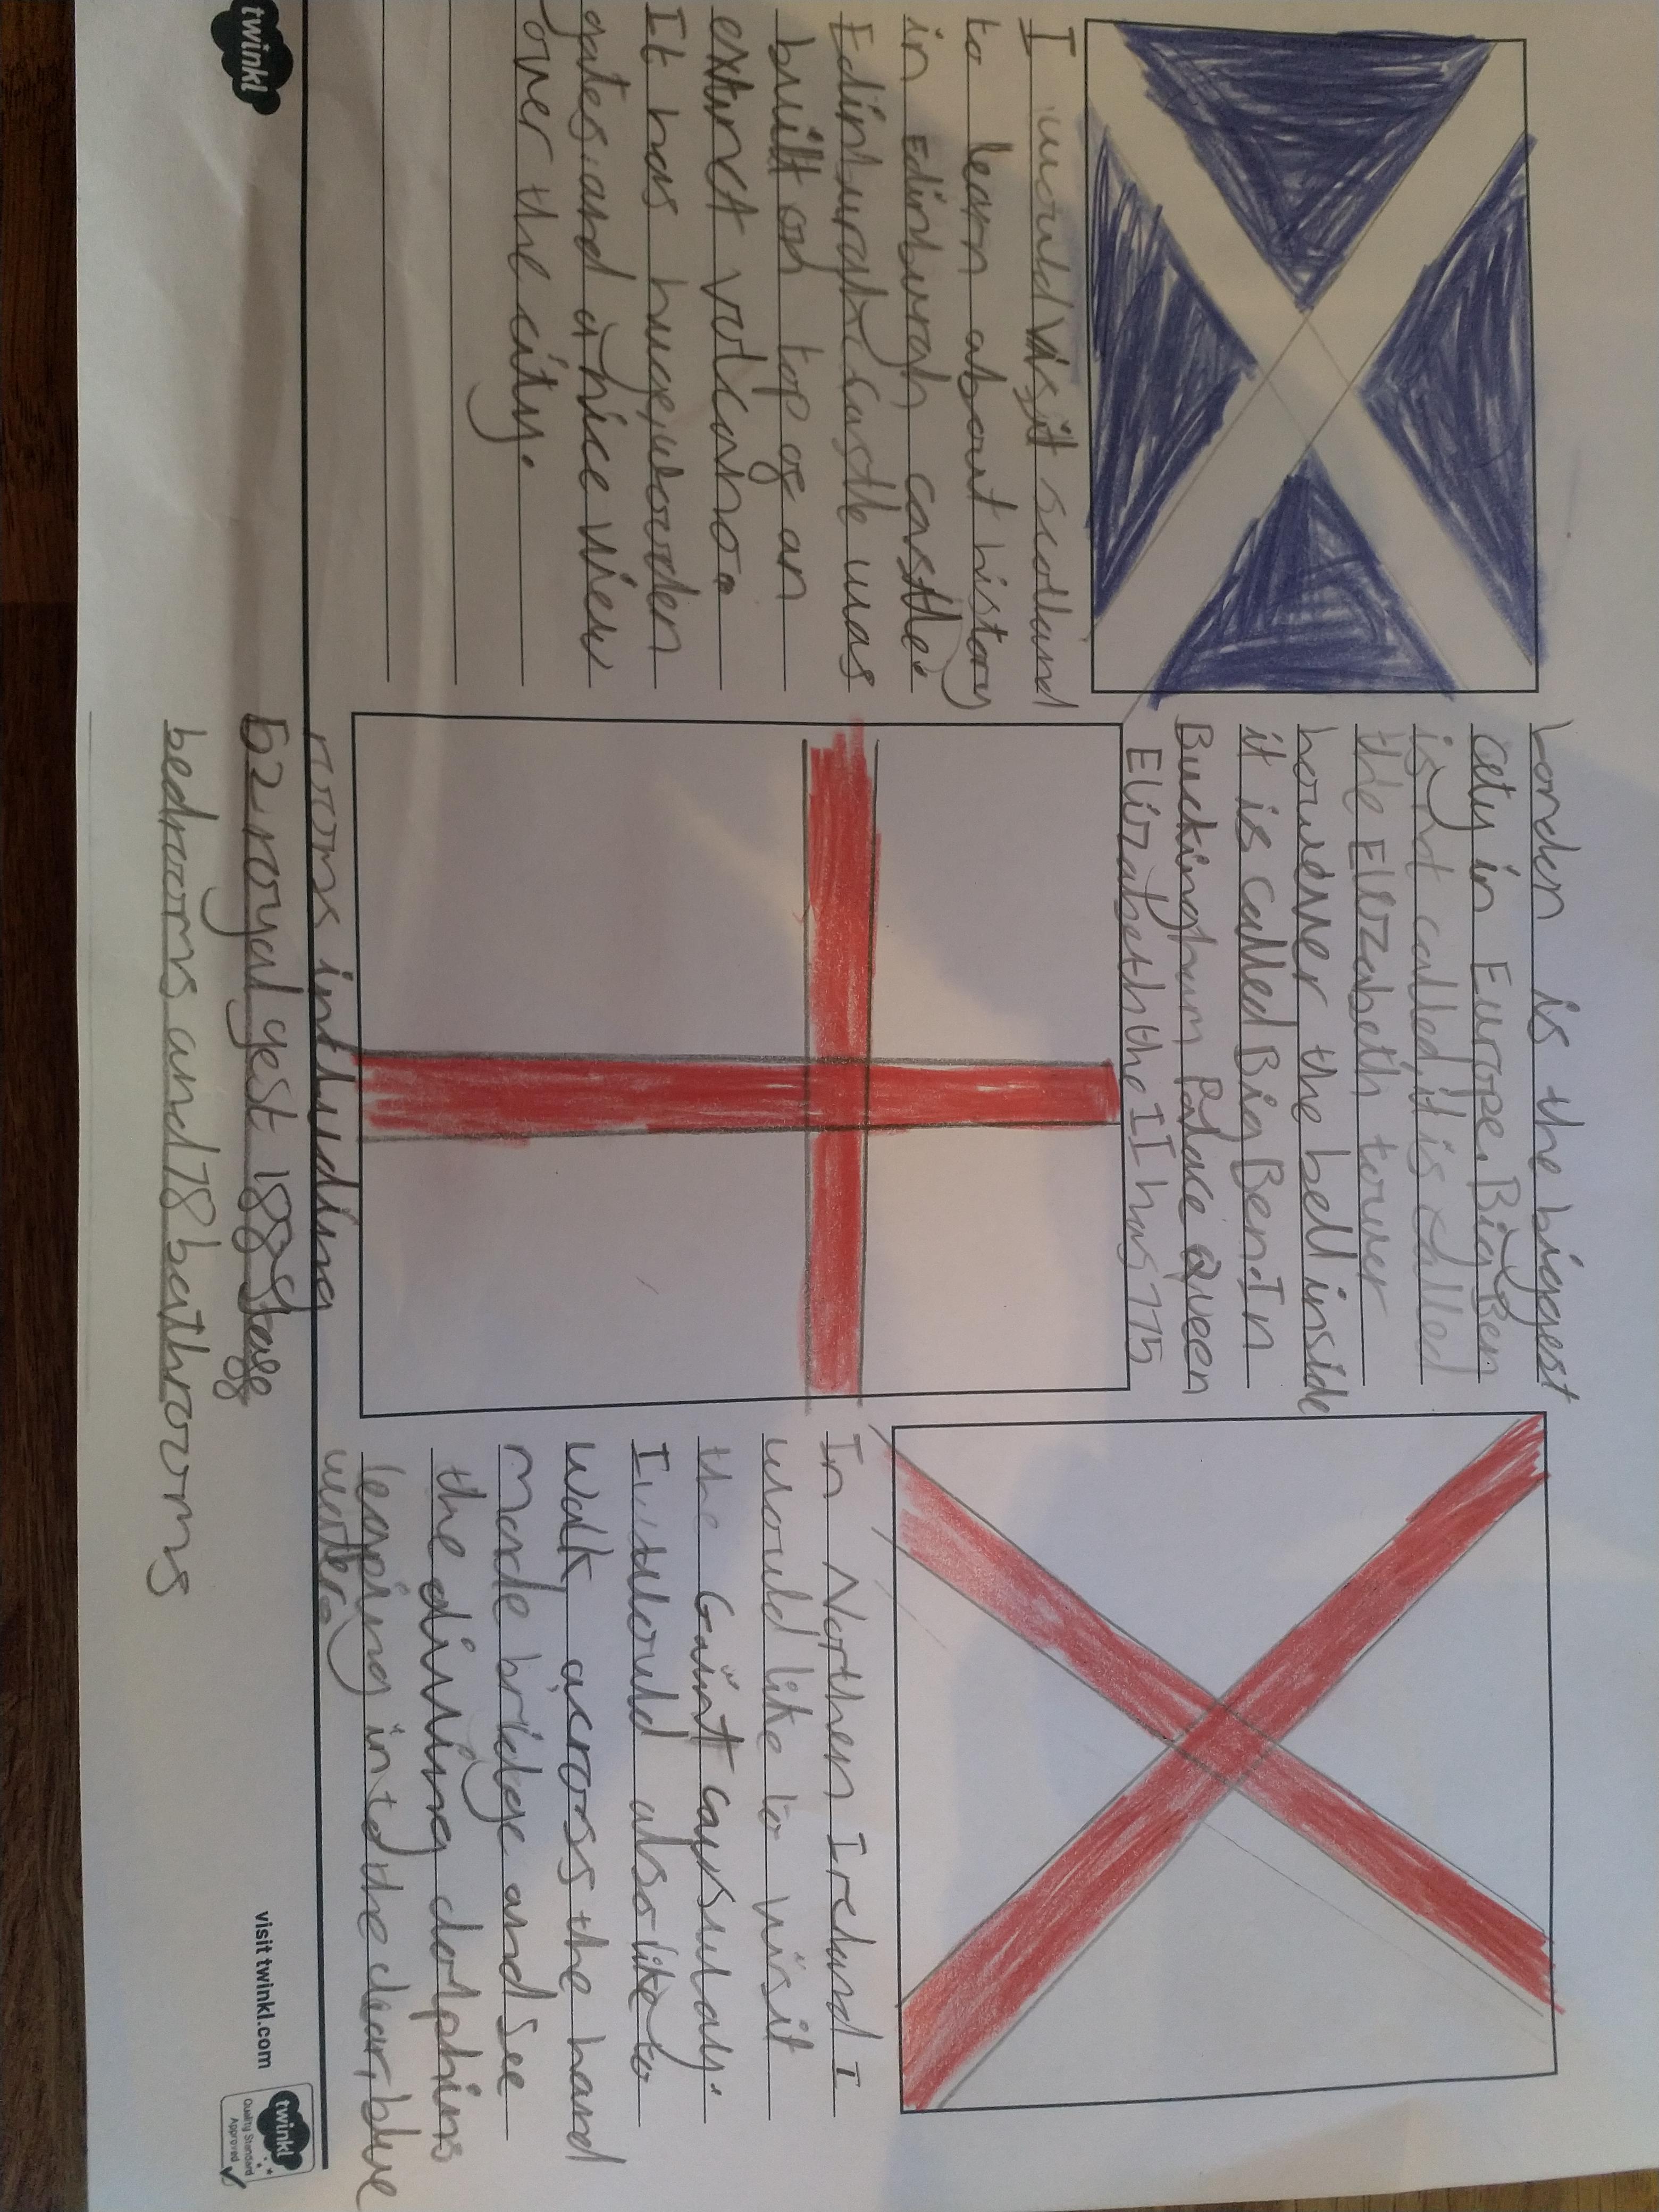 I would visit scotland
to learn about history
in Edinburgh castle.
Edinburgh Castle was
built on top of an
extinct volcano.
It has huge, wooden
gates and a nice view
over the city.
London is the biggest
city in Europe. Big Ben
is'nt called, it is called
the Elizabeth tower
however the bell inside
it is called Big Ben. In
Buckingham Palace Queen
Elizabeth the II has 775
rooms intluding
52 royal gest 188 staff
bedrooms and 78 bathrooms
In Northen Ireland I
would like to visit
the Gaint caysuløay.
I would also like to
walk across the hand
made bridge and see
the diving dolphins
leaping in to the clear, blue
water.
twinkl
visit twinkl.com
twinkl
Quality Standard
Approved